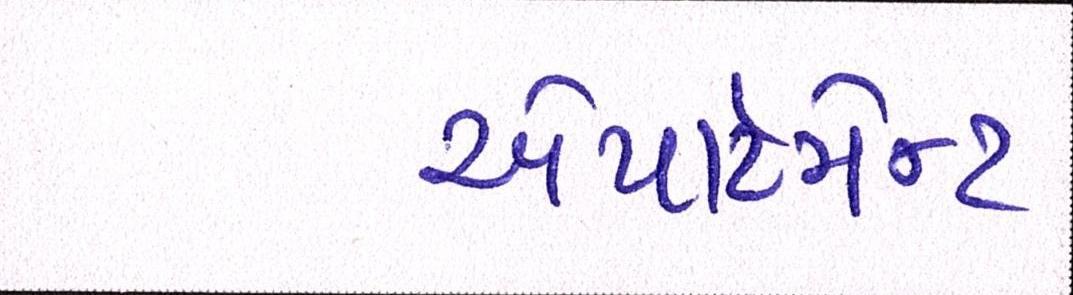 એપાર્ટમેન્ટ